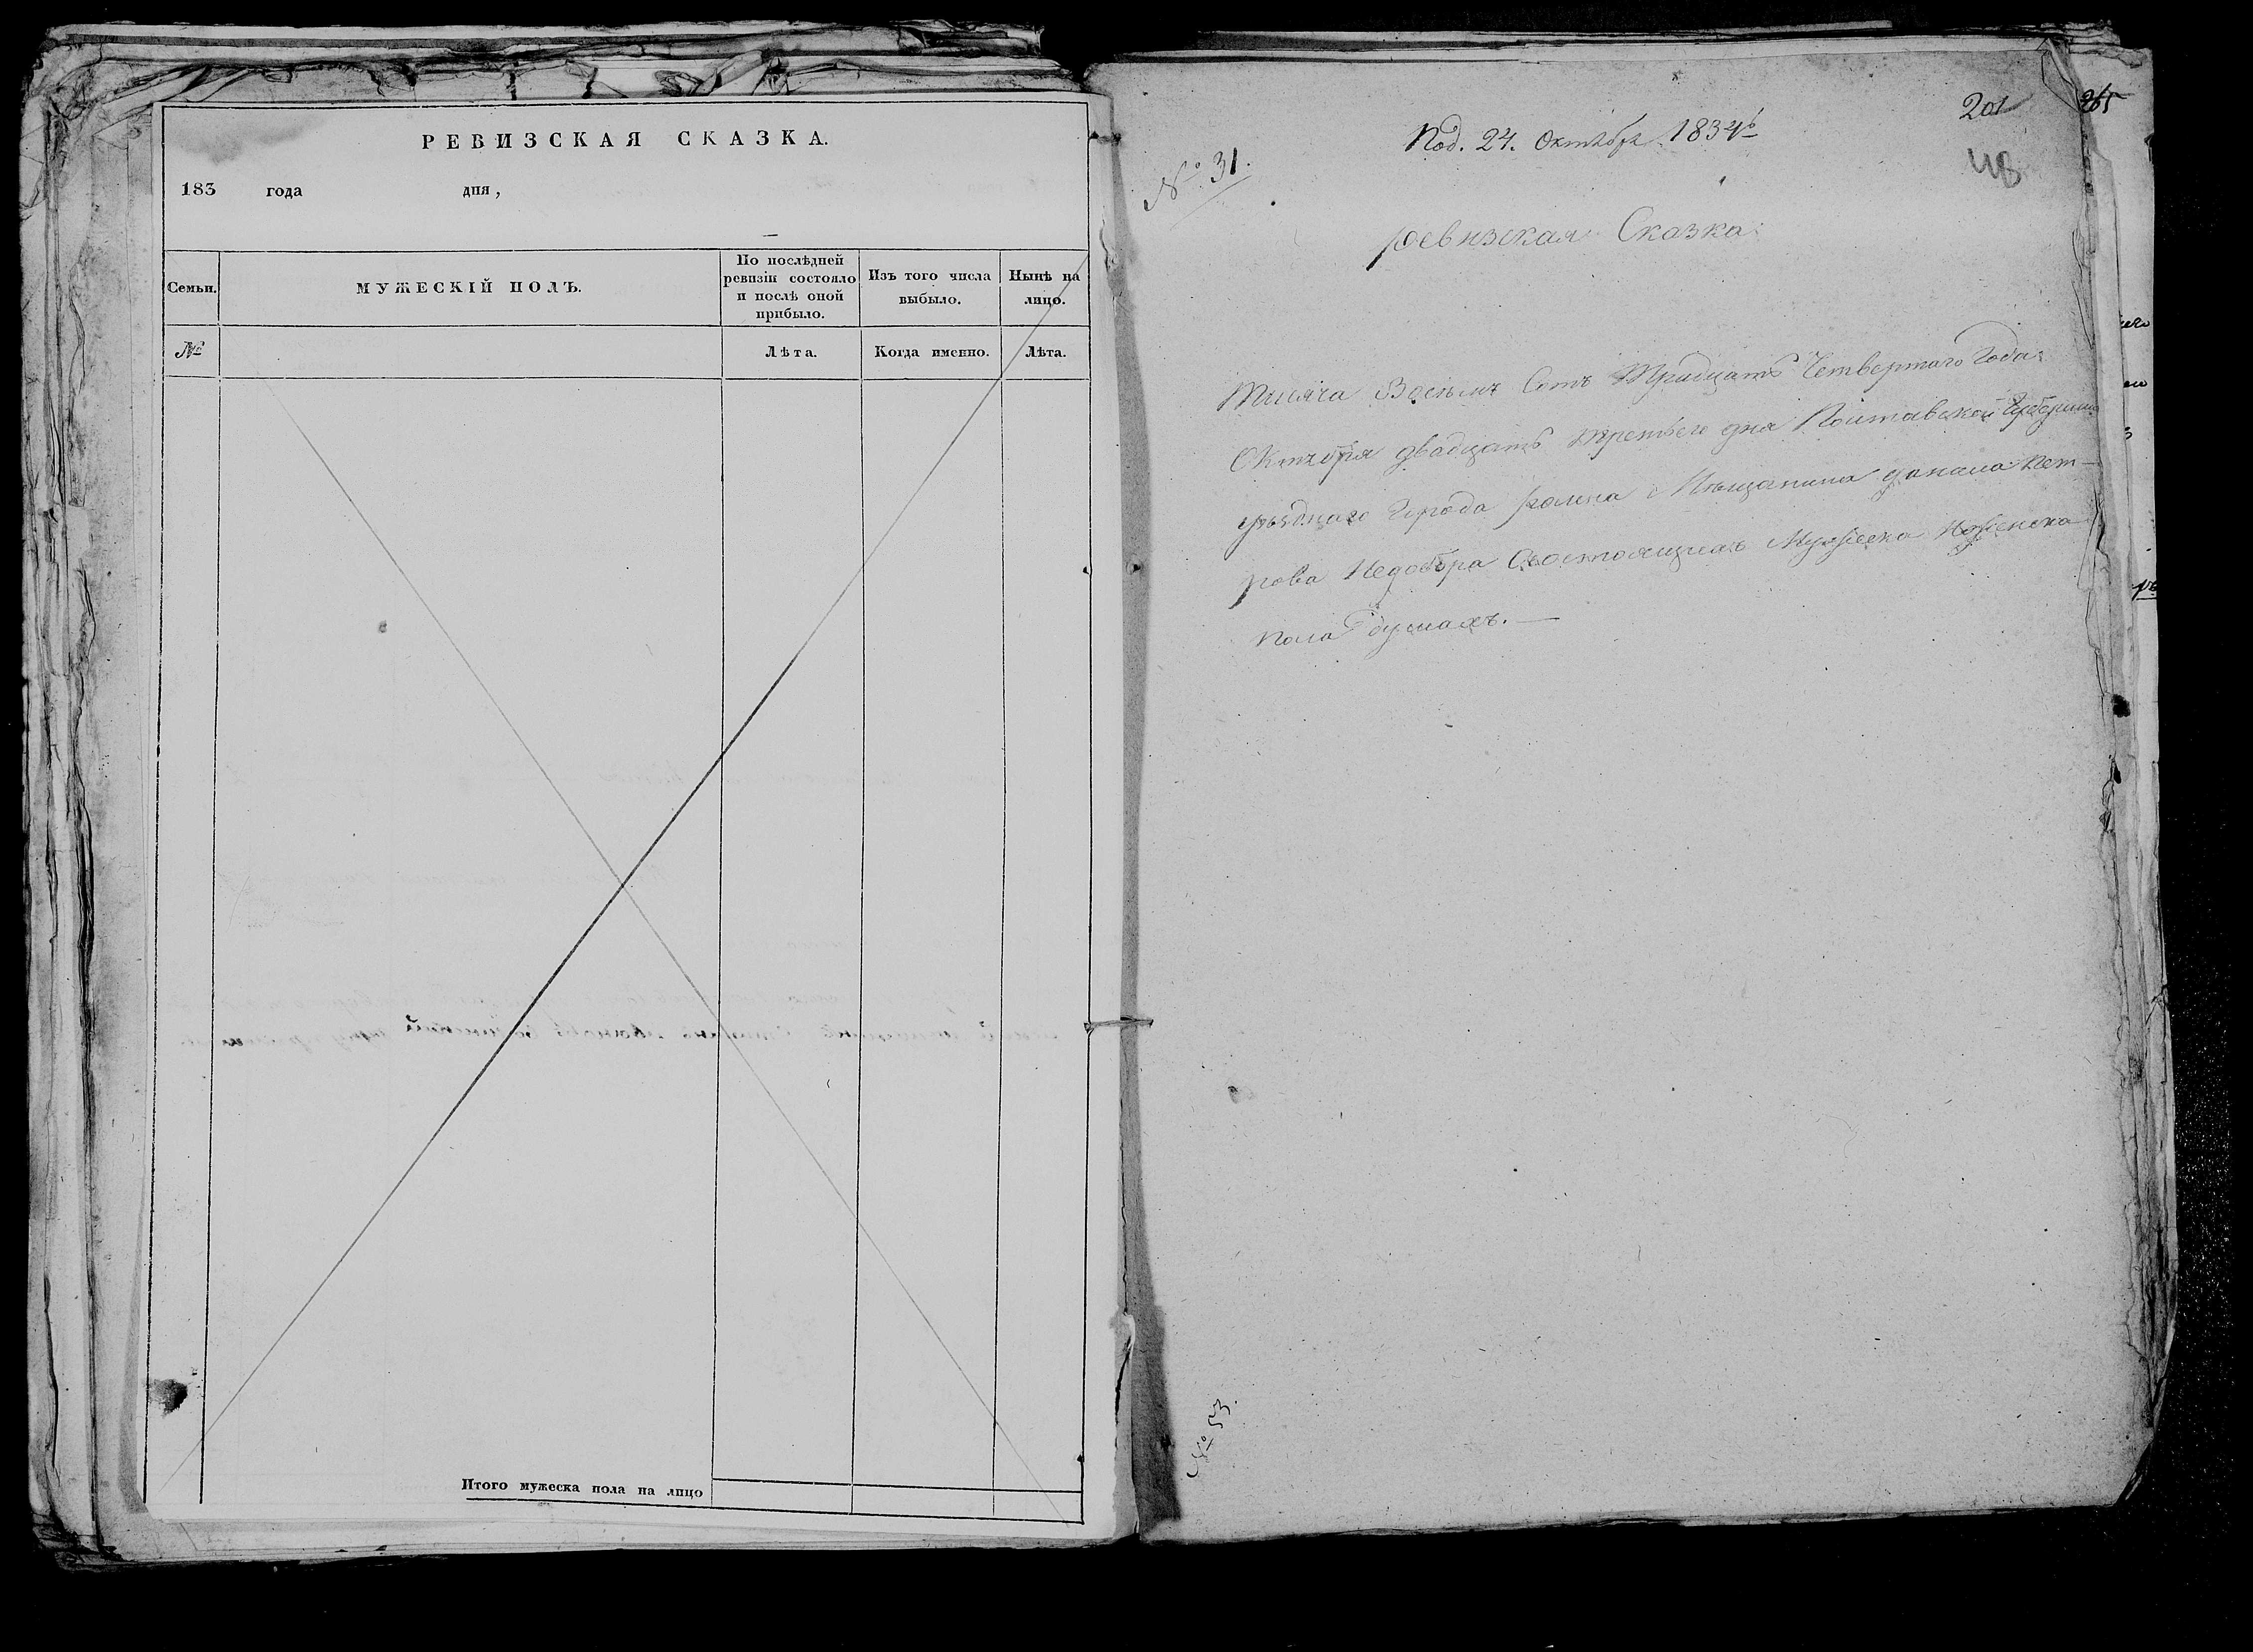 РЕВИЗСКАЯ СКАЗКА.
183 года дня,
Семьи. МУЖЕСКІЙ ПОЛЪ. По послѣдней ревизіи состояло и послѣ оной прибыло. Изъ того числа выбыло. Нынѣ на лицо.
№ Лѣта. Когда именно. Лѣта.
Итого мужеска пола на лицо
201
265
Под. 24. Октября 1834
48
№ 31.
ревизская Сказка
Тысяча Восемъ Сотъ Тридцать Четвертаго Года
Октября двадцать третьего дня Полтавской Губернии
уѣзднаго Города ромна Мѣщанина данила пет-
рова Недобра Состоящихъ Мужеска Иженска
пола душахъ. —
№ 53.